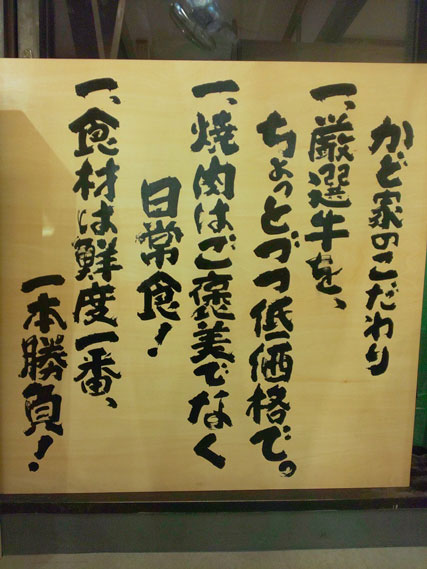 かど家のこだわり
一、厳選牛を、
ちょっとづつ低価格で。
一、焼肉はご褒美でなく
日常食!
一、食材は鮮度一番、
一本勝負!